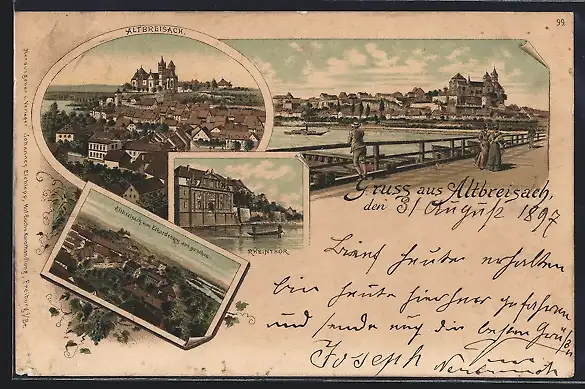 ALTBREISACH.
99
Gruss aus Altbreisach,
den 31 August 1897
RHEINTHOR.
Altbreisach vom Eckardtsberg aus gesehen.
Brief heute erhalten
bin heute hierher gefahren
und sende noch die besten Grüße
Joseph